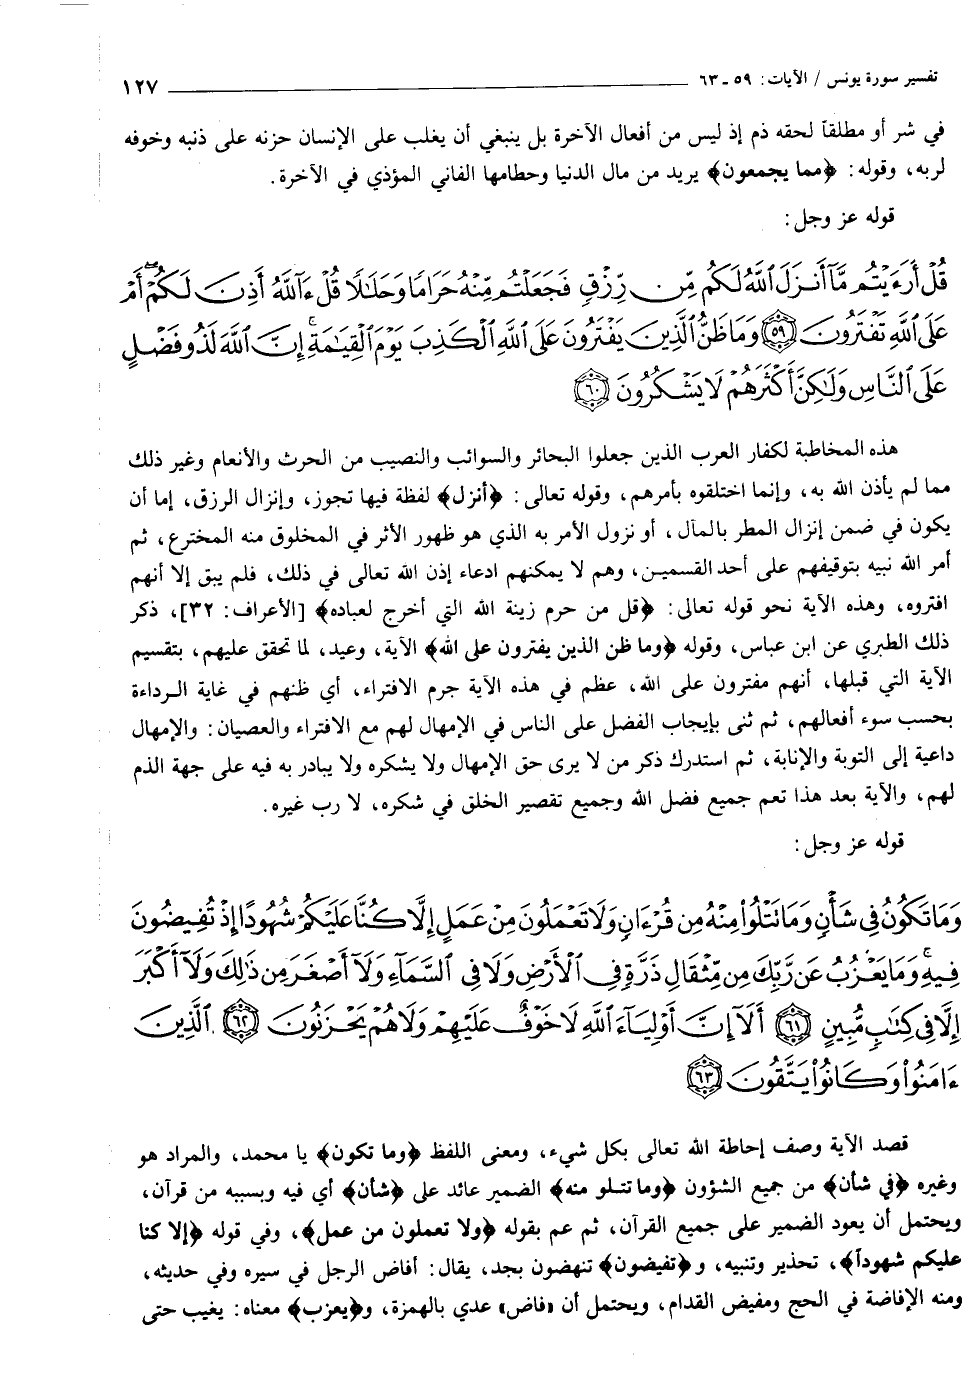 تفسير سورة يونس / الآيات: ٥٩ ـ ٦٣ ١٢٧
في شر أو مطلقاً لحقه ذم إذ ليس من أفعال الآخرة بل ينبغي أن يغلب على الإنسان حزنه على ذنبه وخوفه
لربه، وقوله: ﴿مما يجمعون﴾ يريد من مال الدنيا وحطامها الفاني المؤذي في الآخرة.
قوله عز وجل:
قُلْ أَرَءَيْتُم مَّآ أَنزَلَ ٱللَّهُ لَكُم مِّن رِّزْقٍ فَجَعَلْتُم مِّنْهُ حَرَامًا وَحَلَٰلًا قُلْ ءَآللَّهُ أَذِنَ لَكُمْ ۖ أَمْ
عَلَى ٱللَّهِ تَفْتَرُونَ ﴿٥٩﴾ وَمَا ظَنُّ ٱلَّذِينَ يَفْتَرُونَ عَلَى ٱللَّهِ ٱلْكَذِبَ يَوْمَ ٱلْقِيَٰمَةِ ۗ إِنَّ ٱللَّهَ لَذُو فَضْلٍ
عَلَى ٱلنَّاسِ وَلَٰكِنَّ أَكْثَرَهُمْ لَا يَشْكُرُونَ ﴿٦٠﴾
هذه المخاطبة لكفار العرب الذين جعلوا البحائر والسوائب والنصيب من الحرث والأنعام وغير ذلك
مما لم يأذن الله به، وإنما اختلقوه بأمرهم، وقوله تعالى: ﴿أنزل﴾ لفظة فيها تجوز، وإنزال الرزق، إما أن
يكون في ضمن إنزال المطر بالمآل، أو نزول الأمر به الذي هو ظهور الأثر في المخلوق منه المخترع، ثم
أمر الله نبيه بتوقيفهم على أحد القسمين، وهم لا يمكنهم ادعاء إذن الله تعالى في ذلك، فلم يبق إلا أنهم
افتروه، وهذه الآية نحو قوله تعالى: ﴿قل من حرم زينة الله التي أخرج لعباده﴾ [الأعراف: ٣٢]، ذكر
ذلك الطبري عن ابن عباس، وقوله ﴿وما ظن الذين يفترون على الله﴾ الآية، وعيد، لما تحقق عليهم، بتقسيم
الآية التي قبلها، أنهم مفترون على الله، عظم في هذه الآية جرم الافتراء، أي ظنهم في غاية الرداءة
بحسب سوء أفعالهم، ثم ثنى بإيجاب الفضل على الناس في الإمهال لهم مع الافتراء والعصيان: والإمهال
داعية إلى التوبة والإنابة، ثم استدرك ذكر من لا يرى حق الإمهال ولا يشكره ولا يبادر به فيه على جهة الذم
لهم، والآية بعد هذا تعم جميع فضل الله وجميع تقصير الخلق في شكره، لا رب غيره.
قوله عز وجل:
وَمَا تَكُونُ فِى شَأْنٍ وَمَا تَتْلُوا۟ مِنْهُ مِن قُرْءَانٍ وَلَا تَعْمَلُونَ مِنْ عَمَلٍ إِلَّا كُنَّا عَلَيْكُمْ شُهُودًا إِذْ تُفِيضُونَ
فِيهِ ۚ وَمَا يَعْزُبُ عَن رَّبِّكَ مِن مِّثْقَالِ ذَرَّةٍ فِى ٱلْأَرْضِ وَلَا فِى ٱلسَّمَآءِ وَلَآ أَصْغَرَ مِن ذَٰلِكَ وَلَآ أَكْبَرَ
إِلَّا فِى كِتَٰبٍ مُّبِينٍ ﴿٦١﴾ أَلَآ إِنَّ أَوْلِيَآءَ ٱللَّهِ لَا خَوْفٌ عَلَيْهِمْ وَلَا هُمْ يَحْزَنُونَ ﴿٦٢﴾ ٱلَّذِينَ
ءَامَنُوا۟ وَكَانُوا۟ يَتَّقُونَ ﴿٦٣﴾
قصد الآية وصف إحاطة الله تعالى بكل شيء، ومعنى اللفظ ﴿وما تكون﴾ يا محمد، والمراد هو
وغيره ﴿في شأن﴾ من جميع الشؤون ﴿وما تتلو منه﴾ الضمير عائد على ﴿شأن﴾ أي فيه وبسببه من قرآن،
ويحتمل أن يعود الضمير على جميع القرآن، ثم عم بقوله ﴿ولا تعملون من عمل﴾، وفي قوله ﴿إلا كنا
عليكم شهوداً﴾، تحذير وتنبيه، و﴿تفيضون﴾ تنهضون بجد، يقال: أفاض الرجل في سيره وفي حديثه،
ومنه الإفاضة في الحج ومفيض القدام، ويحتمل أن «فاض» عدي بالهمزة، و﴿يعزب﴾ معناه: يغيب حتى